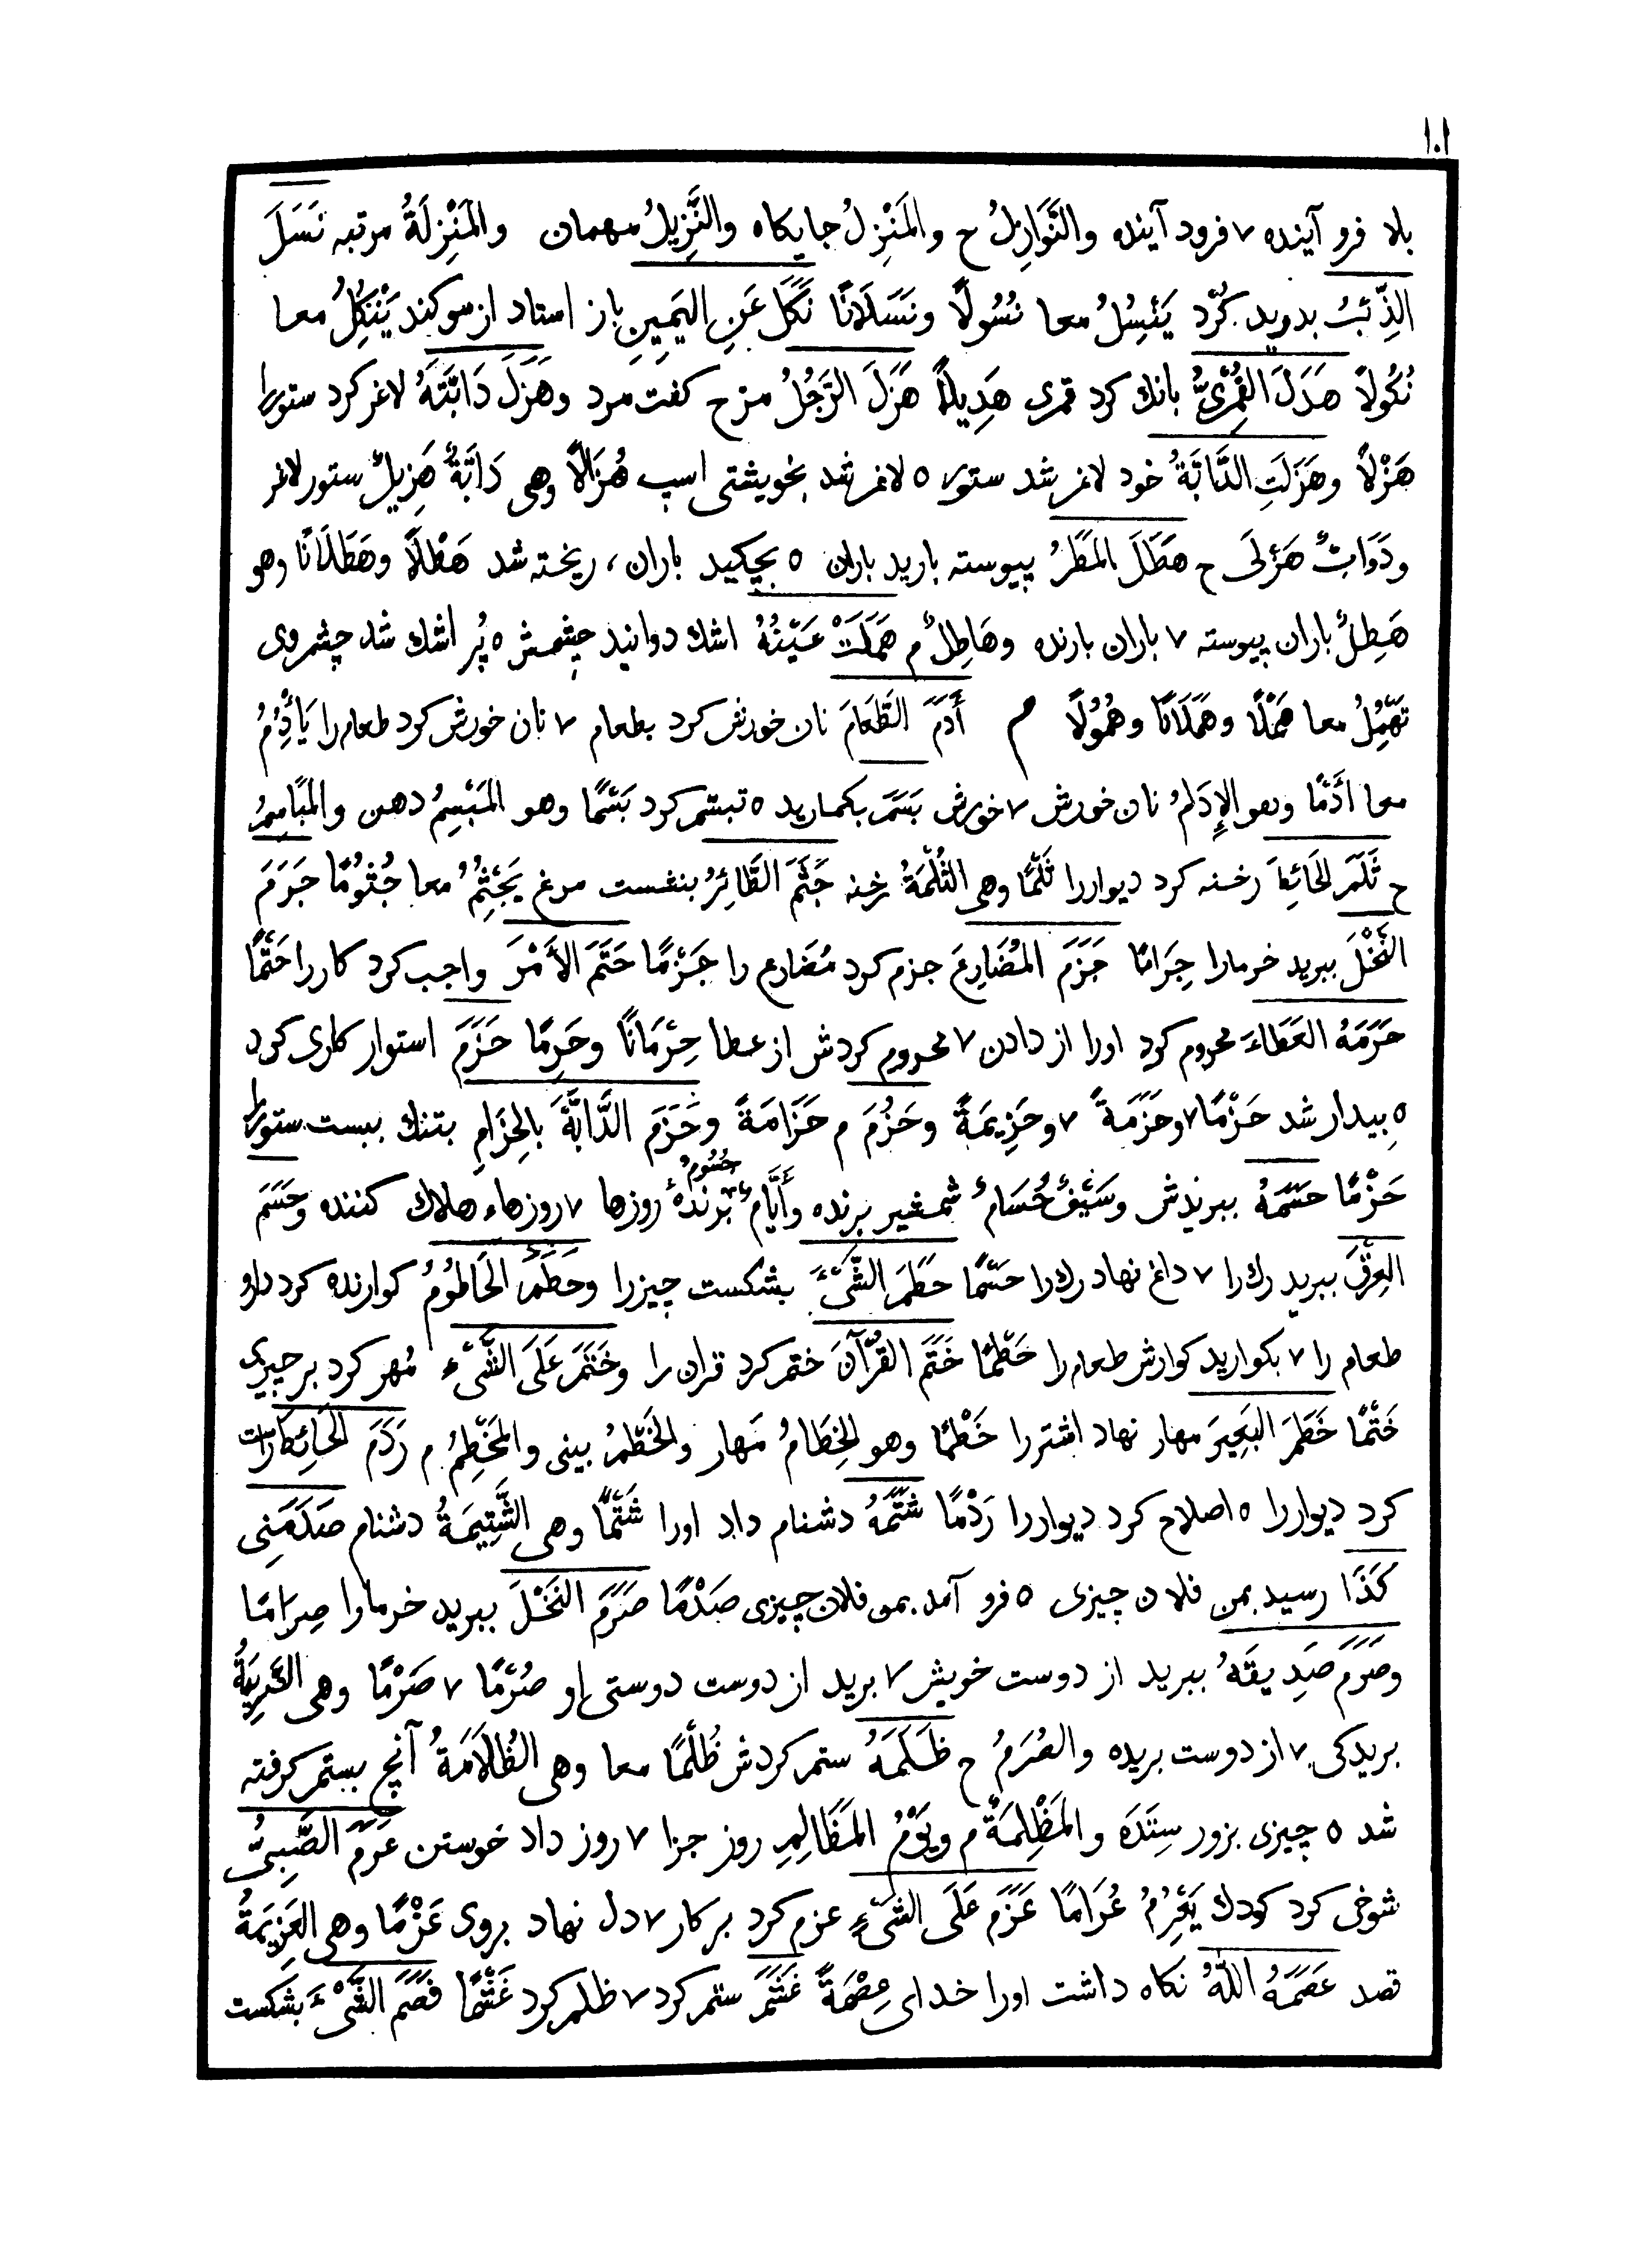 ١٠١
بلا فرو آینده ٧ فرود آینده والنَّوَازِلُ ح والمَنْزِلُ جایکاه والنَّزِیلُ مهمان والمَنْزِلَةُ مرتبه نَسَلَ
الذِّئبُ بدوید کُرْد یَنْسِلُ معا نُسُولًا ونَسَلَانًا نَکَلَ عَنِ الیَمِینِ باز استاد از سوکند یَنْکِلُ معا
نُکُولًا هَدَلَ القُمْرِیُّ بانك کرد قمری هَدِیلًا هَزَلَ الرَّجُلُ مزح کفت مرد وهَزَلَ دَابَّتَهُ لاغر کرد ستوررا
هَزْلًا وهَزَلَتِ الدَّابَّةُ خود لاغر شد ستور ٥ لاغر شد بخویشتی اسپ هُزَالًا وهی دَابَّةٌ هَزِیلٌ ستور لاغر
ودَوَابٌّ هَزْلَی ح هَطَلَ المَطَرُ پیوسته بارید باران ٥ بچکید باران، ریخته شد هَطْلًا وهَطَلَانًا وهو
هَطِلٌ باران پیوسته ٧ باران بارنده وهَاطِلٌ م هَمَلَتْ عَیْنُهُ اشك دوانید چشمش ٥ پُر اشك شد چشم وی
تَهْمِلُ معا هَمْلًا وهَمَلَانًا وهُمُولًا م أَدَمَ الطَّعَامَ نان خورش کرد بطعام ٧ نان خورش کرد طعام را یَأْدِمُ
معا أَدْمًا وهو الإِدَامُ نان خورش ٧ خورش بَسَمَ بکمارید ٥ تبسّم کرد بَسْمًا وهو المَبْسِمُ دهن والمَبَاسِمُ
ح ثَلَمَ الحَائِطَ رخنه کرد دیواررا ثَلْمًا وهی الثُّلْمَةُ رخنه جَثَمَ الطَّائِرُ بنشست مرغ یَجْثِمُ معا جُثُومًا جَرَمَ
النَّخْلَ ببرید خرمارا جِرَامًا جَزَمَ المُضَارِعَ جزم کرد مُضَارع را جَزْمًا حَتَمَ الأَمْرَ واجب کرد کاررا حَتْمًا
حَرَمَهُ العَطَاءَ محروم کرد اورا از دادن ٧ محروم کردش از عطا حِرْمَانًا وحَرِمًا حَزَمَ استوار کاری کرد
٥ بیدار شد حَزْمًا ٧ وحَزْمَةً ٧ وحَزِیمَةً وحَزُمَ م حَزَامَةً وحَزَمَ الدَّابَّةَ بالحِزَامِ بتنك ببست ستوررا
حَزْمًا حَسَمَهُ ببریدش وسَیْفٌ حُسَامٌ شمشیر برنده وأَیَّامٌ حُسُومٌ برنده روزها ٧ روزهاء هلاك کننده وحَسَمَ
العِرْقَ ببرید رك را ٧ داغ نهاد رك را حَسْمًا حَطَمَ الشَّیْءَ بشکست چیزرا وحَطَمَ الحَاطُومُ کوارنده کرد دارو
طعام را ٧ بکوارید کوارش طعام را حَطْمًا خَتَمَ القُرْآنَ ختم کرد قران را وخَتَمَ عَلَی الشَّیْءِ مُهر کرد بر چیزی
خَتْمًا خَطَمَ البَعِیرَ مهار نهاد اشتررا خَطْمًا وهو الخِطَامُ مَهار والخَطْمُ بینی والمَخْطِمُ م رَدَمَ الحَائِطَ راست
کرد دیواررا ٥ اصلاح کرد دیواررا رَدْمًا شَتَمَهُ دشنام داد اورا شَتْمًا وهی الشَّتِیمَةُ دشنام صَدَمَنِی
کَذَا رسید بمن فلان چیزی ٥ فرو آمد بمن فلان چیزی صَدْمًا صَرَمَ النَّخْلَ ببرید خرمارا صِرَامًا
وصَرَمَ صَدِیقَهُ ببرید از دوست خویش ٧ برید از دوست دوستی او صُرْمًا ٧ صَرْمًا وهی الصَّرِیمَةُ
بریدکی ٧ از دوست بریده والصُرَمُ ح ظَلَمَهُ ستم کردش ظُلْمًا معا وهی الظُّلَامَةُ آنچ بستم کرفته
شد ٥ چیزی بزور سِتَدَه والمَظْلِمَةُ م ویَوْمُ المَظَالِمِ روز جزا ٧ روز داد خوستن عَرَمَ الصَّبِیُّ
شوخی کرد کودك یَعْرِمُ عُرَامًا عَزَمَ عَلَی الشَّیْءِ عزم کرد بر کار ٧ دل نهاد بروی عَزْمًا وهی العَزِیمَةُ
قصد عَصَمَهُ اللّٰهُ نکاه داشت اورا خدای عِصْمَةً غَشَمَ ستم کرد ٧ ظلم کرد غَشْمًا فَصَمَ الشَّیْءَ بشکست